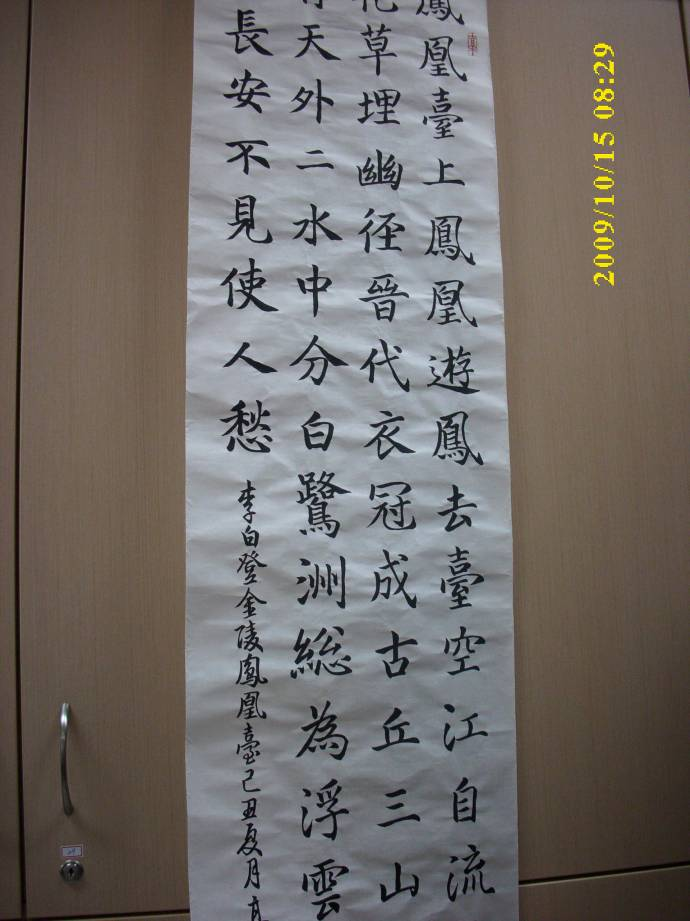 鳳凰臺上鳳凰遊鳳去臺空江自流
花草埋幽径晉代衣冠成古丘三山
天外二水中分白鷺洲総為浮雲
長安不見使人愁
李白登金陵鳳凰臺己丑夏月
2009/10/15 08:29